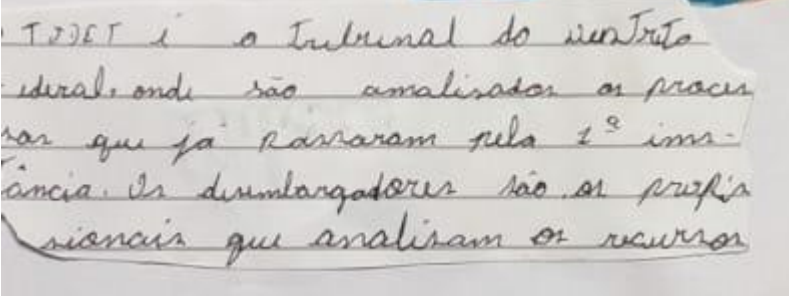 TJDFT é o Tribunal do Distrito
ederal, onde são amalisados os proces
sos que já passaram pela 1ª ins-
tância. Os desembargadores são os profis
sionais que analisam os recursos